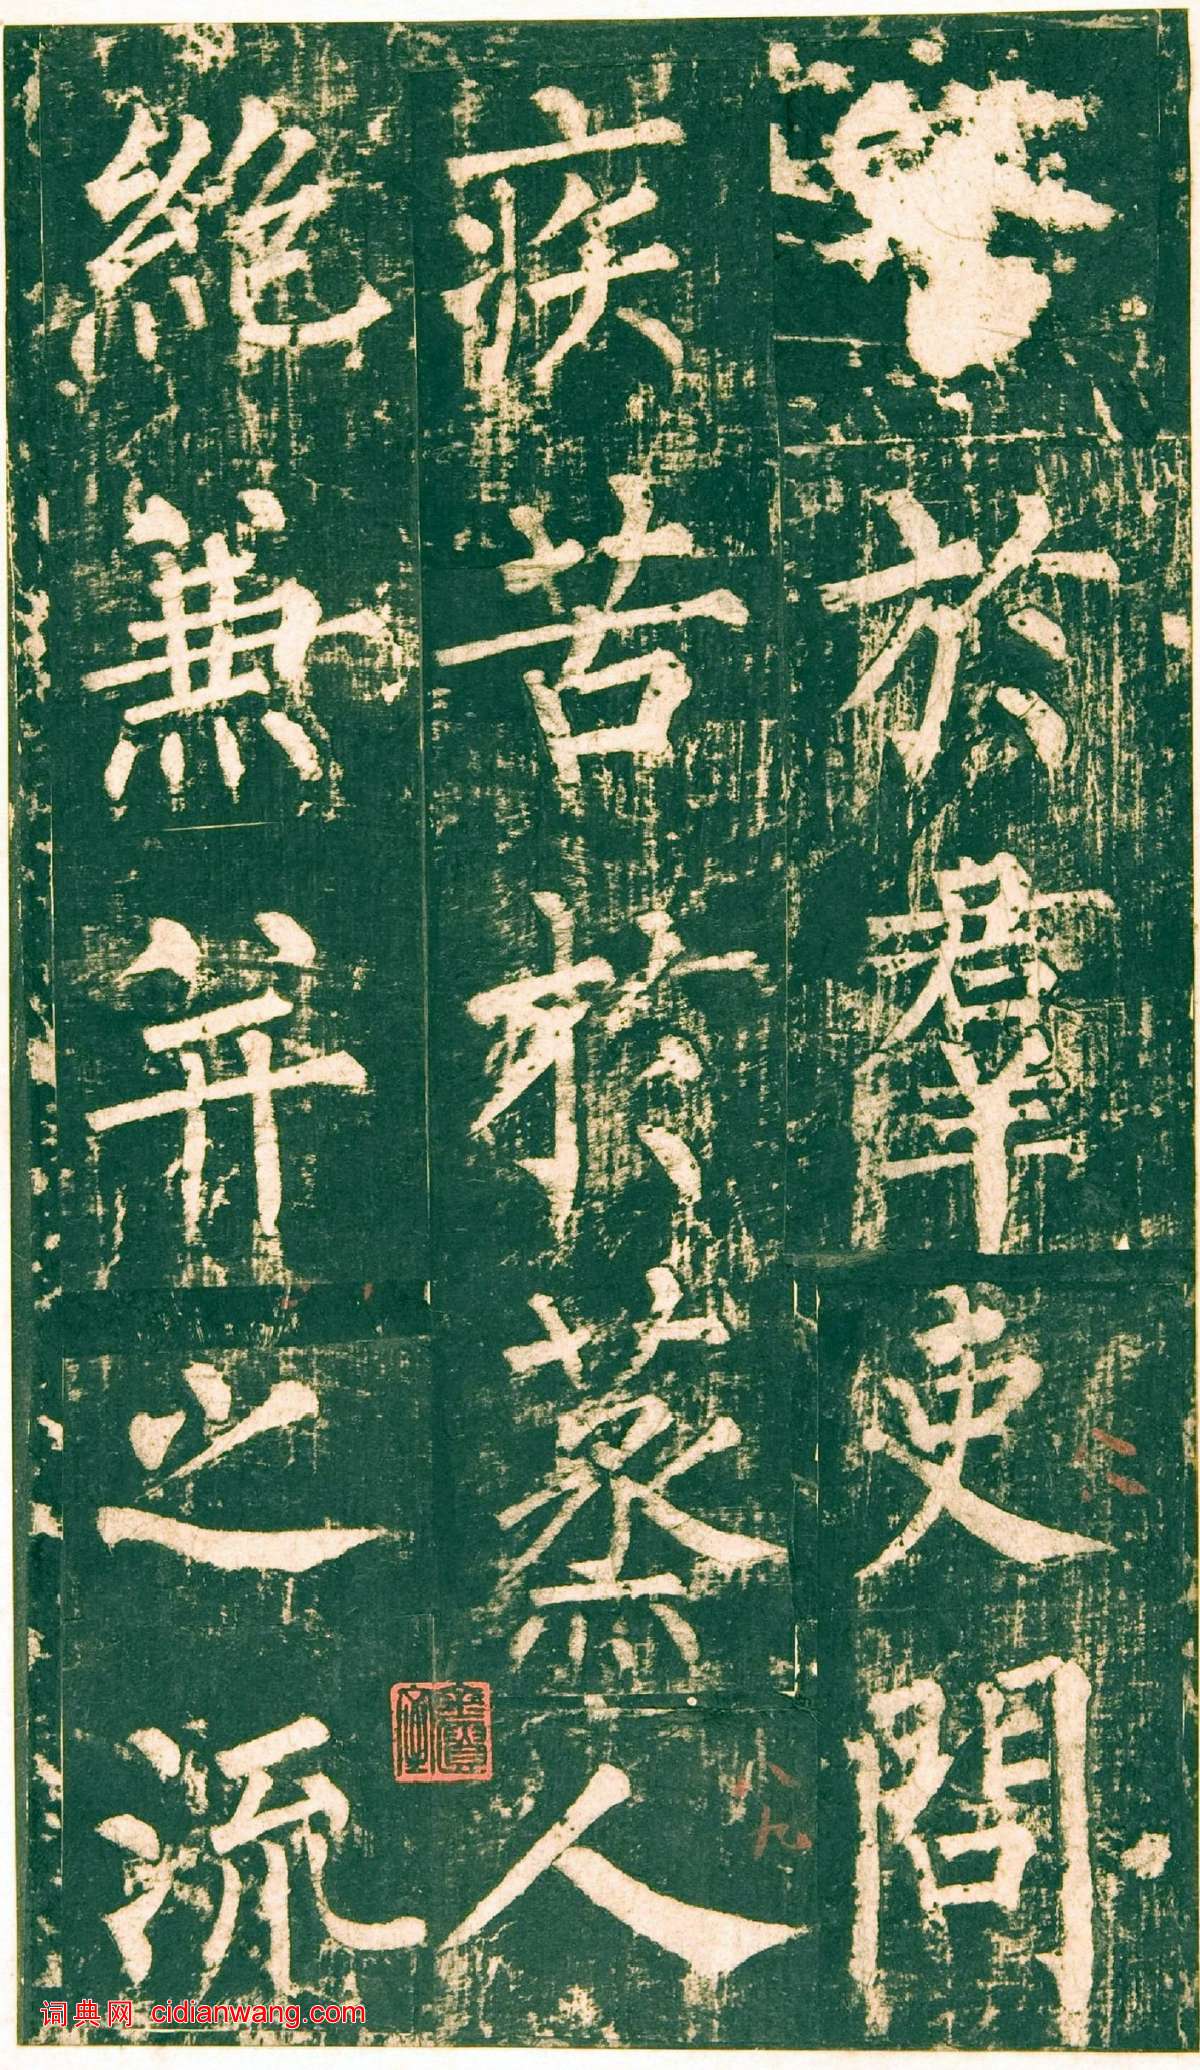 於羣吏問
疾苦於蒸人
絶兼并之流
词典网 cidianwang.com